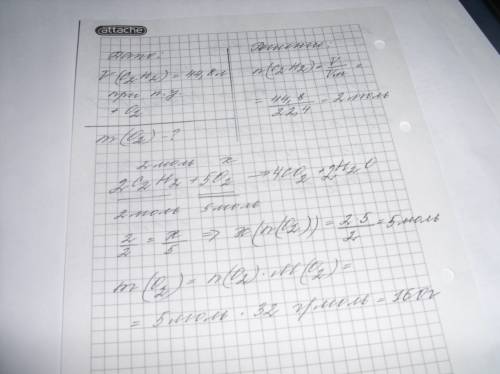 attache
Дано:
V(C2H2) = 44,8 л
при н.у.
+ O2
m(O2) - ?
Решение:
n(C2H2) = V/Vm =
= 44,8/22,4 = 2 моль
2 моль x
2C2H2 + 5O2 → 4CO2 + 2H2O
2 моль 5 моль
2/2 = x/5 ⇒ x(n(O2)) = 2·5/2 = 5 моль
m(O2) = n(O2) · M(O2) =
= 5 моль · 32 г/моль = 160 г